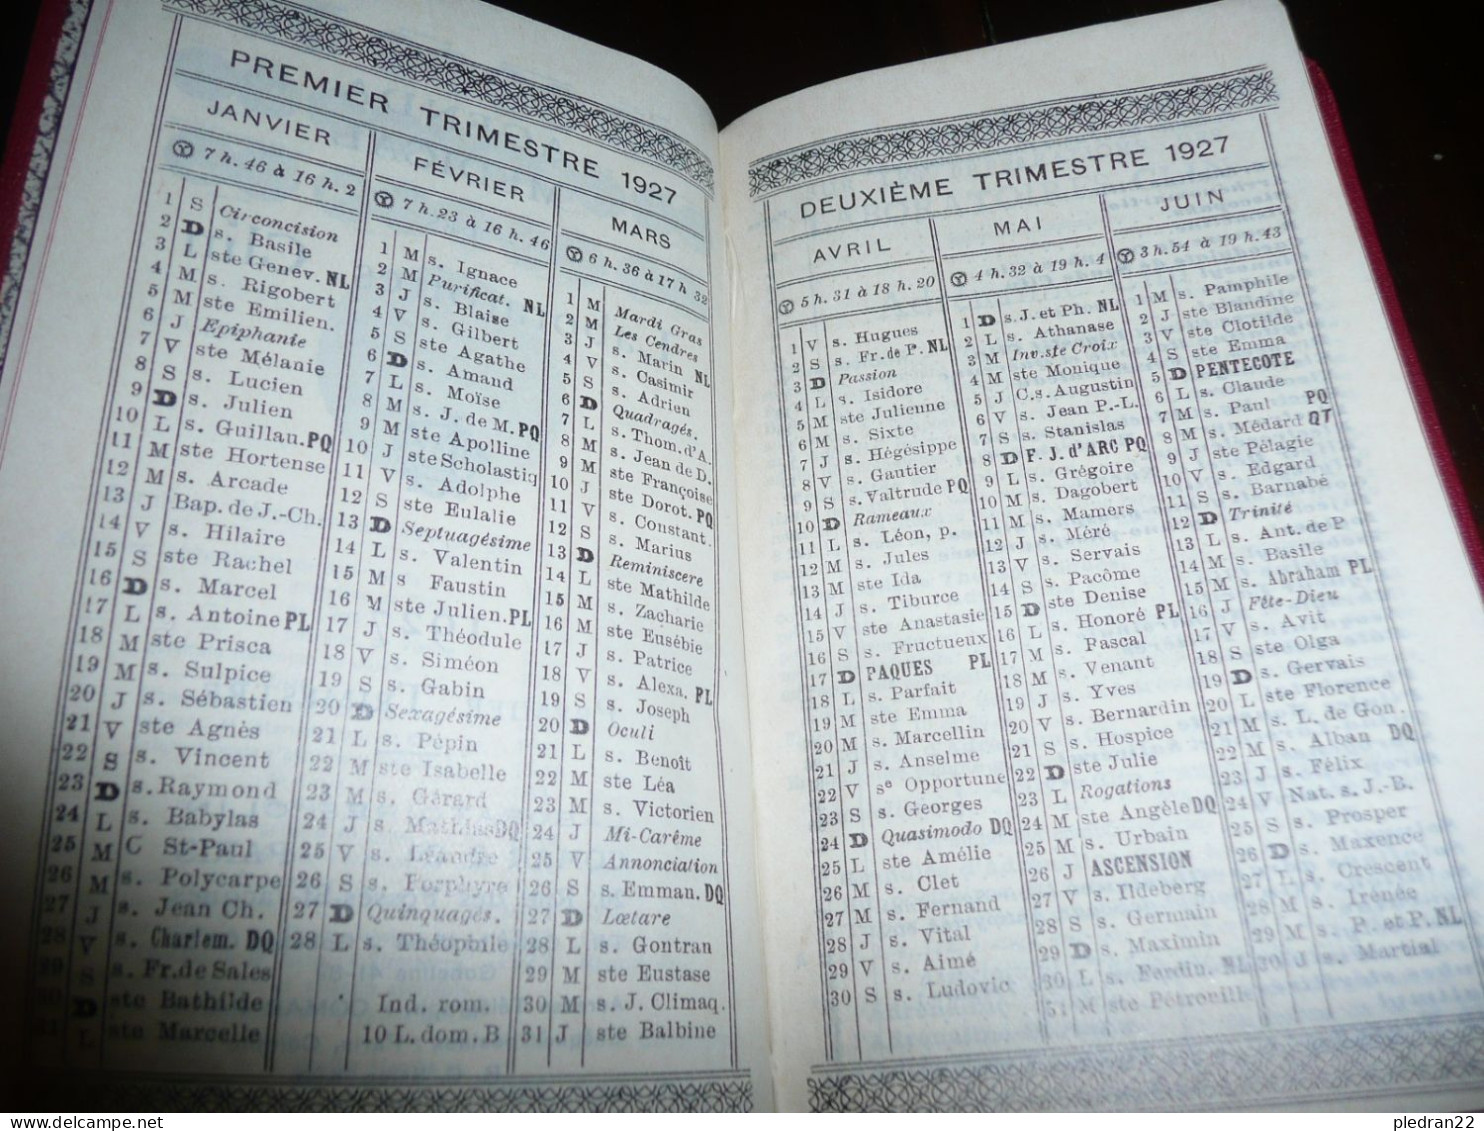 PREMIER TRIMESTRE 1927
JANVIER
7 h. 46 à 16 h. 2
1 S Circoncision
2 D s. Basile
3 L ste Genev. NL
4 M s. Rigobert
5 M ste Emilien.
6 J Epiphanie
7 V ste Mélanie
8 S s. Lucien
9 D s. Julien
10 L s. Guillau. PQ
11 M ste Hortense
12 M s. Arcade
13 J Bap. de J.-Ch.
14 V s. Hilaire
15 S ste Rachel
16 D s. Marcel
17 L s. Antoine PL
18 M ste Prisca
19 M s. Sulpice
20 J s. Sébastien
21 V ste Agnès
22 S s. Vincent
23 D s. Raymond
24 L s. Babylas
25 M C St-Paul
26 M s. Polycarpe
27 J s. Jean Ch.
28 V s. Charlem. DQ
29 S s. Fr. de Sales
30 D ste Bathilde
31 L ste Marcelle
FÉVRIER
7 h. 23 à 16 h. 46
1 M s. Ignace
2 M Purificat. NL
3 J s. Blaise
4 V s. Gilbert
5 S ste Agathe
6 D s. Amand
7 L s. Moïse
8 M s. J. de M. PQ
9 M ste Apolline
10 J ste Scholastiq
11 V s. Adolphe
12 S ste Eulalie
13 D Septuagésime
14 L s. Valentin
15 M s Faustin
16 M ste Julien. PL
17 J s. Théodule
18 V s. Siméon
19 S s. Gabin
20 D Sexagésime
21 L s. Pépin
22 M ste Isabelle
23 M s. Gérard
24 J s. Mathias DQ
25 V s. Léandre
26 S s. Porphyre
27 D Quinquagés.
28 L s. Théophile
Ind. rom.
10 L. dom. B
MARS
6 h. 36 à 17 h 32
1 M Mardi Gras
2 M Les Cendres
3 J s. Marin NL
4 V s. Casimir
5 S s. Adrien
6 D Quadragés.
7 L s. Thom. d'A.
8 M s. Jean de D.
9 M ste Françoise
10 J ste Dorot. PQ
11 V s. Constant.
12 S s. Marius
13 D Reminiscere
14 L ste Mathilde
15 M s. Zacharie
16 M ste Eusébie
17 J s. Patrice
18 V s. Alexa. PL
19 S s. Joseph
20 D Oculi
21 L s. Benoît
22 M ste Léa
23 M s. Victorien
24 J Mi-Carême
25 V Annonciation
26 S s. Emman. DQ
27 D Lœtare
28 L s. Gontran
29 M ste Eustase
30 M s. J. Climaq.
31 J ste Balbine
DEUXIÈME TRIMESTRE 1927
AVRIL
5 h. 31 à 18 h. 20
1 V s. Hugues
2 S s. Fr. de P. NL
3 D Passion
4 L s. Isidore
5 M ste Julienne
6 M s. Sixte
7 J s. Hégésippe
8 V s. Gautier
9 S s. Valtrude PQ
10 D Rameaux
11 L s. Léon, p.
12 M s. Jules
13 M ste Ida
14 J s. Tiburce
15 V ste Anastasie
16 S s. Fructueux
17 D PAQUES PL
18 L s. Parfait
19 M ste Emma
20 M s. Marcellin
21 J s. Anselme
22 V se Opportune
23 S s. Georges
24 D Quasimodo DQ
25 L ste Amélie
26 M s. Clet
27 M s. Fernand
28 J s. Vital
29 V s. Aimé
30 S s. Ludovic
MAI
4 h. 32 à 19 h. 4
1 D s. J. et Ph. NL
2 L s. Athanase
3 M Inv. ste Croix
4 M ste Monique
5 J C. s. Augustin
6 V s. Jean P.-L.
7 S s. Stanislas
8 D F. J. d'ARC PQ
9 L s. Grégoire
10 M s. Dagobert
11 M s. Mamers
12 J s. Méré
13 V s. Servais
14 S s. Pacôme
15 D ste Denise
16 L s. Honoré PL
17 M s. Pascal
18 M s. Venant
19 J s. Yves
20 V s. Bernardin
21 S s. Hospice
22 D ste Julie
23 L Rogations
24 M ste Angèle DQ
25 M s. Urbain
26 J ASCENSION
27 V s. Ildeberg
28 S s. Germain
29 D s. Maximin
30 L s. Ferdin. NL
31 M ste Pétronille
JUIN
3 h. 54 à 19 h. 43
1 M s. Pamphile
2 J ste Blandine
3 V ste Clotilde
4 S ste Emma
5 D PENTECOTE
6 L s. Claude
7 M s. Paul PQ
8 M s. Médard QT
9 J ste Pélagie
10 V s. Edgard
11 S s. Barnabé
12 D Trinité
13 L s. Ant. de P.
14 M s. Basile
15 M s. Abraham PL
16 J Fête-Dieu
17 V s. Avit
18 S ste Olga
19 D s. Gervais
20 L ste Florence
21 M s. L. de Gon.
22 M s. Alban DQ
23 J s. Félix
24 V Nat. s. J.-B.
25 S s. Prosper
26 D s. Maxence
27 L s. Crescent
28 M s. Irénée
29 M s. P. et P. NL
30 J s. Martial
pledran22